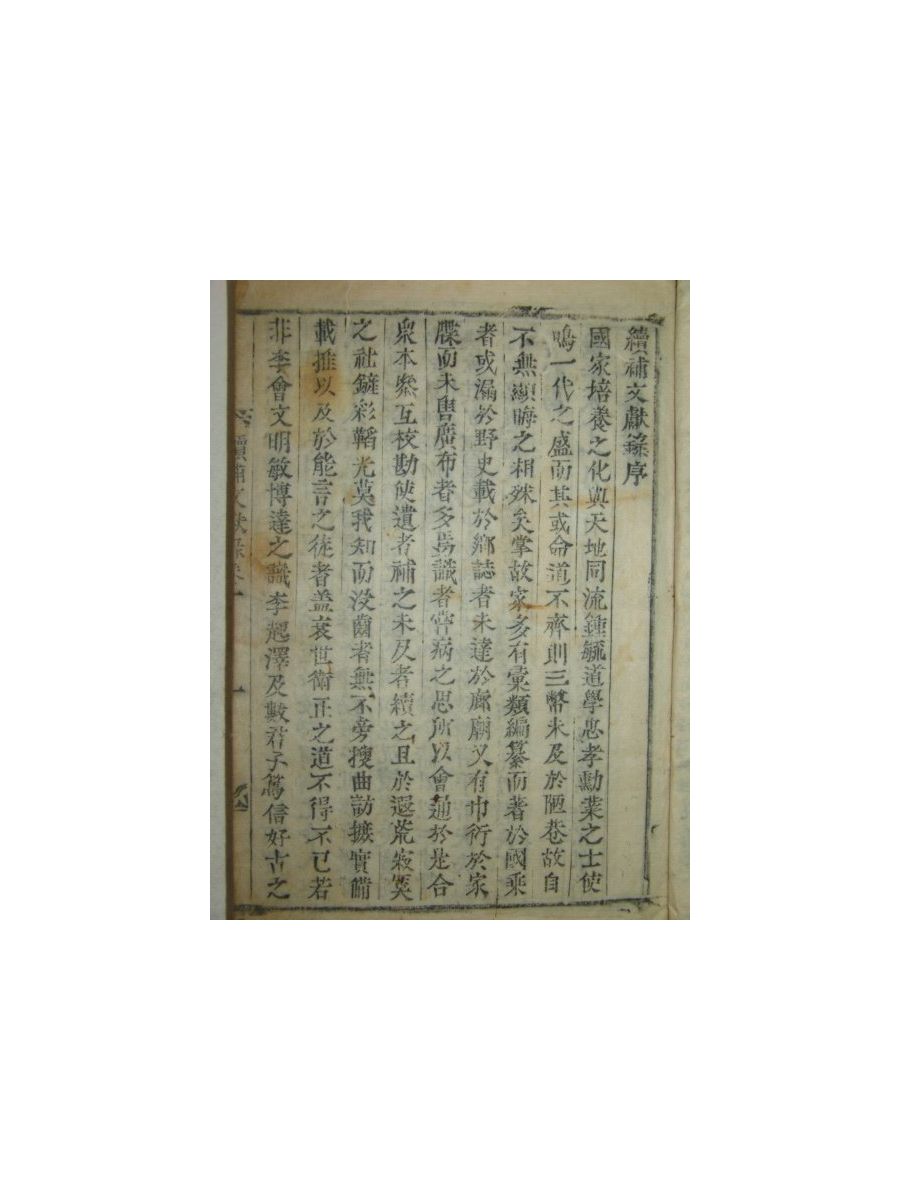 續補文獻錄序
國家培養之化與天地同流鍾毓道學忠孝勳業之士使
鳴一代之盛而其或命道不齊則三幣未及於陋巷故自
不無顯晦之相殊矣掌故家多有彙類編纂而著於國乘
者或漏於野史載於鄉誌者未達於廊廟又有巾衍於家
牒而未曾廣布者多焉識者嘗病之思所以會通於是合
衆本叅互校勘使遺者補之未及者續之且於遐荒寂寞
之社鏟彩韜光莫我知而沒齒者無不旁搜曲訪摭實備
載推以及於能言之徒者盖衰世衛正之道不得不已若
非李會文明敏博達之識李 澤及數君子篤信好古之
續補文献录 一 一